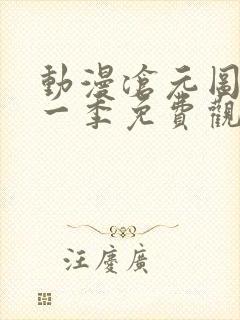 動漫滄元圖
一季免費觀
汪慶廣